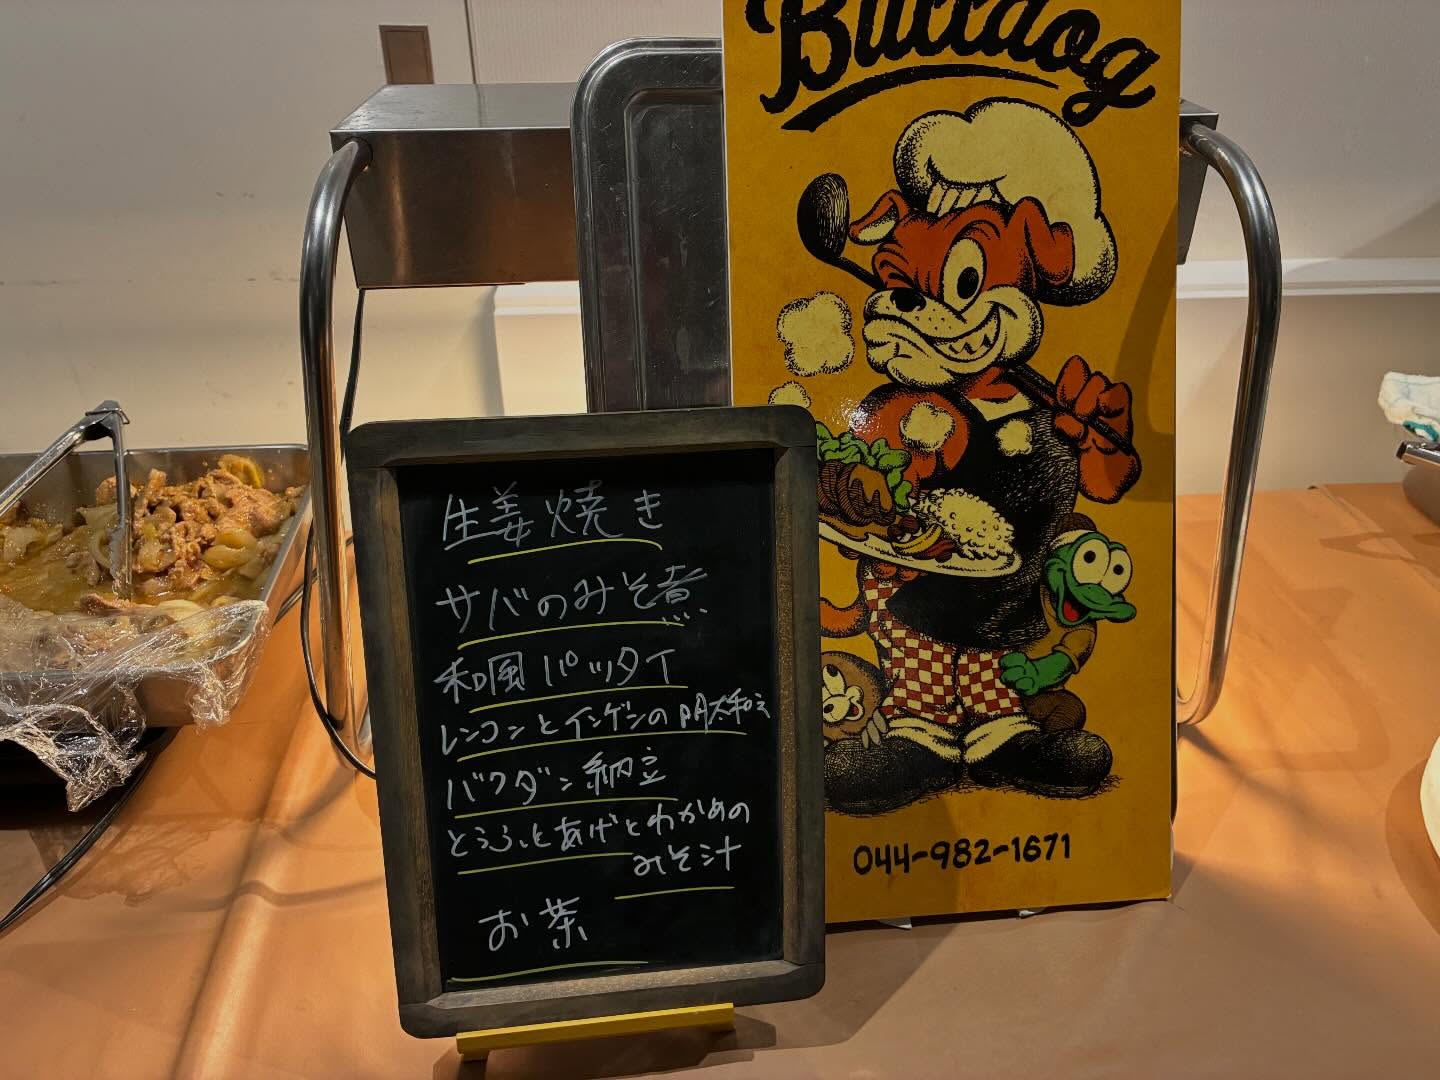 Bulldog
生姜焼き
サバのみそ煮
和風パッタイ
レンコンとインゲンの明太和え
バクダン納豆
とうふとあげとわかめの
みそ汁
お茶
044-982-1671